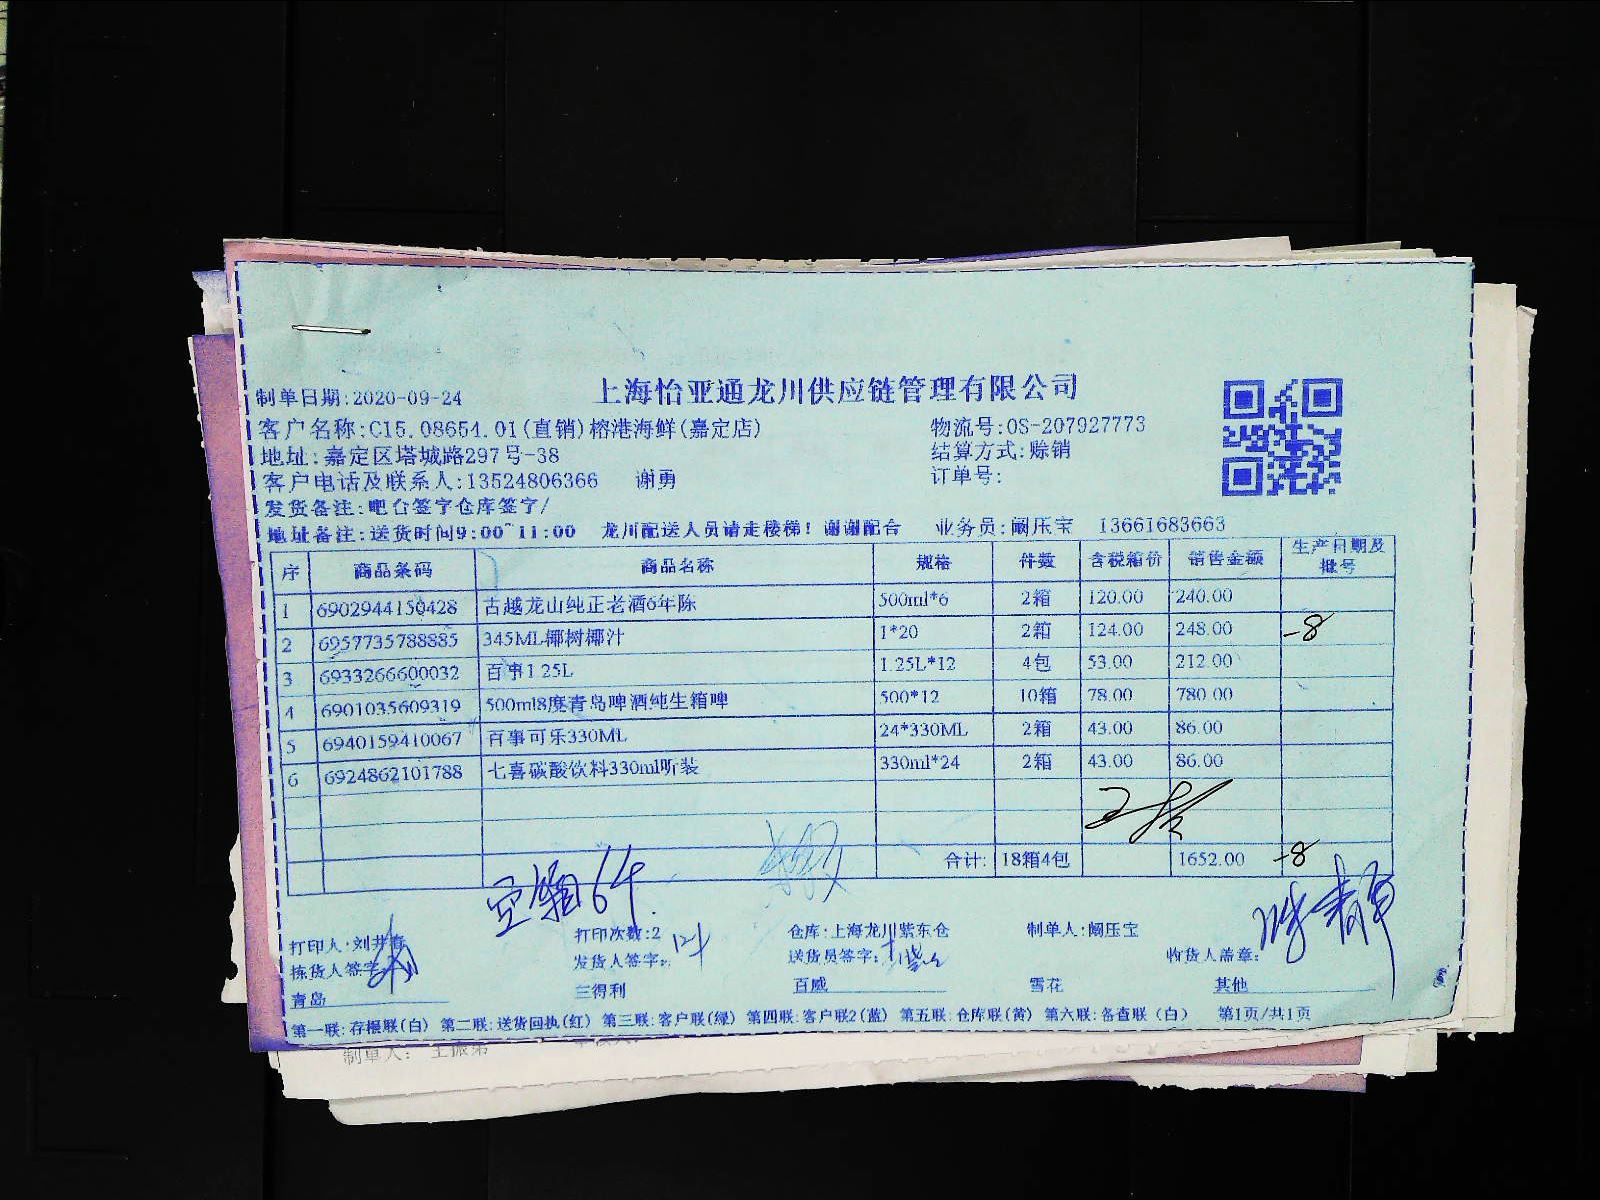 上海怡亚通龙川供应链管理有限公司
制单日期:2020-09-24
客户名称:C15.08654.01(直销)榕港海鲜(嘉定店) 物流号:OS-207927773
地址:嘉定区塔城路297号-38 结算方式:赊销
客户电话及联系人:13524806366 谢勇 订单号:
发货备注:吧台签字仓库签字/
地址备注:送货时间9:00~11:00 龙川配送人员请走楼梯! 谢谢配合 业务员:阚压宝 13661683663
序 商品条码 商品名称 规格 件数 含税箱价 销售金额 生产日期及批号
1 6902944150428 古越龙山纯正老酒6年陈 500ml*6 2箱 120.00 240.00
2 6957735788885 345ML椰树椰汁 1*20 2箱 124.00 248.00 -8
3 6933266600032 百事1.25L 1.25L*12 4包 53.00 212.00
4 6901035609319 500ml8度青岛啤酒纯生箱啤 500*12 10箱 78.00 780.00
5 6940159410067 百事可乐330ML 24*330ML 2箱 43.00 86.00
6 6924862101788 七喜碳酸饮料330ml听装 330ml*24 2箱 43.00 86.00
合计: 18箱4包 1652.00 -8
打印人:刘井 打印次数:2 仓库:上海龙川紫东仓 制单人:阚压宝
拣货人签字 发货人签字: 送货员签字: 收货人盖章:
青岛 三得利 百威 雪花 其他
第一联:存根联(白) 第二联:送货回执(红) 第三联:客户联(绿) 第四联:客户联2(蓝) 第五联:仓库联(黄) 第六联:备查联(白) 第1页/共1页
制单人: